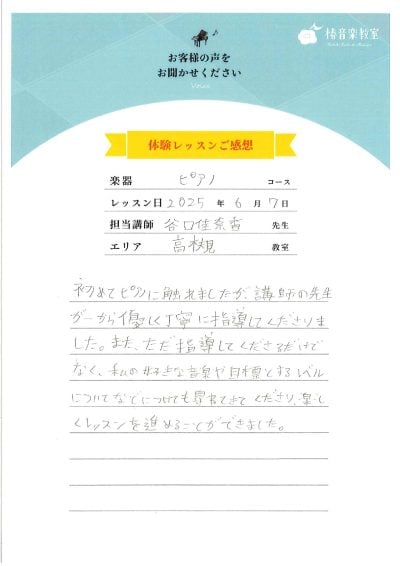 椿音楽教室
お客様の声を
お聞かせください
Voice
体験レッスンご感想
楽器 ピアノ コース
レッスン日 2025 年 6 月 7 日
担当講師 谷口佳奈香 先生
エリア 高槻 教室
初めてピアノに触れましたが、講師の先生
が一から優しく丁寧に指導してくださりま
した。また、ただ指導してくださるだけで
なく、私の好きな音楽や目標とするレベル
についてなどについても尋ねてきてくださり、楽し
くレッスンを進めることができました。